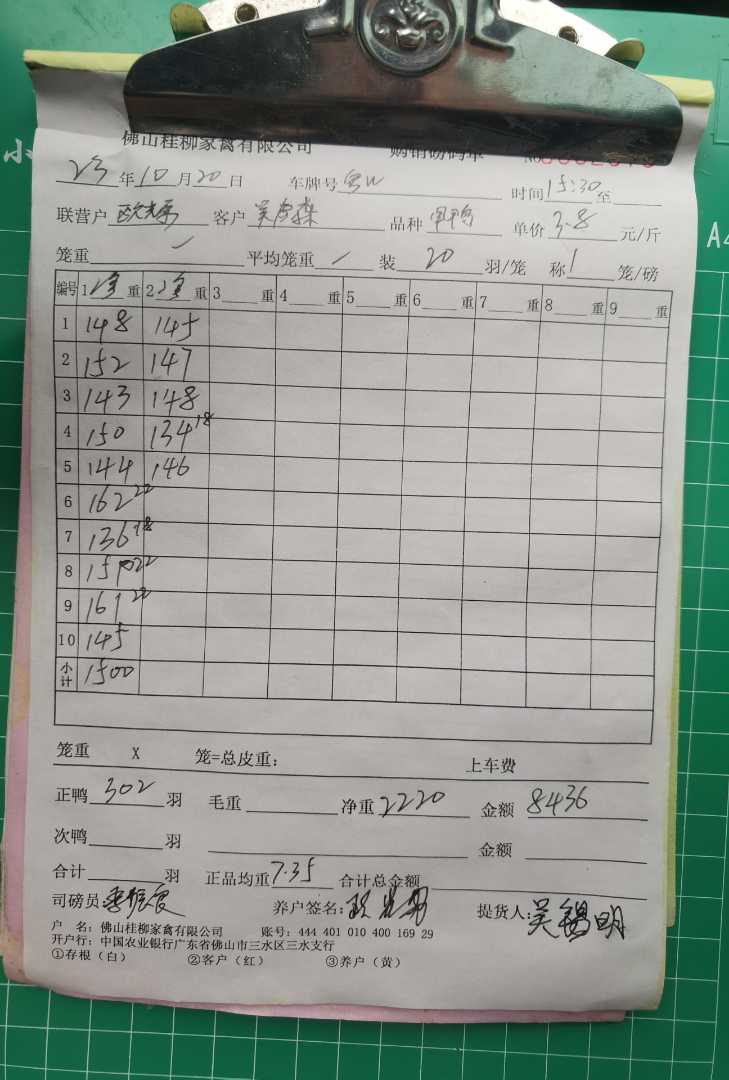 佛山桂柳家禽有限公司 购销磅码单 No
23年10月20日 车牌号 时间15:30至
联营户 客户 品种 单价3.8元/斤
笼重 / 平均笼重 / 装20羽/笼 称1笼/磅
编号 1净重 2净重 3重 4重 5重 6重 7重 8重 9重
1 148 145
2 152 147
3 143 148
4 150 134 18
5 144 146
6 162 22
7 136 18
8 22
9 161 22
10 145
小计 1500
笼重 X 笼=总皮重: 上车费
正鸭302羽 毛重 净重2220 金额8436
次鸭 羽 金额
合计 羽 正品均重7.35 合计总金额
司磅员: 养户签名: 提货人:吴锡明
户 名: 佛山桂柳家禽有限公司 账号: 444 401 010 400 169 29
开户行: 中国农业银行广东省佛山市三水区三水支行
①存根（白） ②客户（红） ③养户（黄）
小
A4